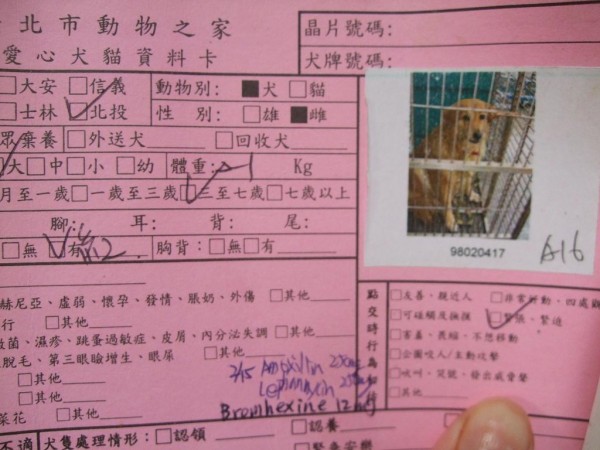 北市動物之家
愛心犬貓資料卡
晶片號碼:
犬牌號碼:
□大安 □信義 動物別: ■犬 □貓
□士林 □北投 性 別: □雄 ■雌
眾棄養 □外送犬 □回收犬
□大 □中 □小 □幼 體重: Kg
月至一歲 □一歲至三歲 □三至七歲 □七歲以上
腳: 耳: 背: 尾:
□無 □有 胸背: □無 □有
98020417
A16
赫尼亞、虛弱、懷孕、發情、脹奶、外傷 □其他
行 □其他
黴菌、濕疹、跳蚤過敏症、皮屑、內分泌失調 □其他
脫毛、第三眼瞼增生、眼屎 □其他
□其他
□其他
菜花 □其他
點交時行為
□友善、親近人
□可碰觸及撫摸
□緊張、緊迫
□害羞、畏縮、不想移動
□企圖咬人/主動攻擊
□吠叫、哭號、發出威脅聲
□其他
2/15 Ampicillin
Bromhexine 12mg
不適 犬隻處理情形: □認領 □認養